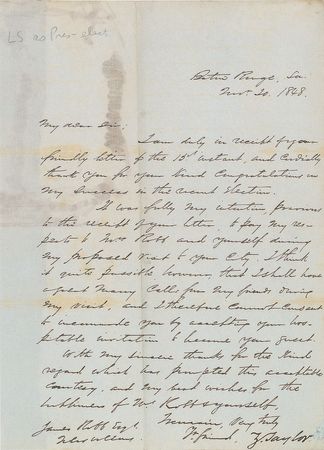 LS as Pres-elect
Baton Rouge, La.
Nov. 20, 1848.
My dear Sir;
I am duly in receipt of your
friendly letter of the 15th instant, and cordially
thank you for your kind Congratulations in
my success in the recent Election.
It was fully my intention previous
to the receipt of your letter, to pay my re-
spects to Mrs Robb and yourself during
my proposed visit to your City. I think
it quite possible however, that I shall have
a great many Calls from my friends during
my visit, and I therefore Cannot Consent
to incommode you by accepting your hos-
pitable invitation to become your guest.
With my sincere thanks for the kind
regard which has prompted this acceptable
courtesy, and my best wishes for the
of Mrs Robb & yourself,
I remain, Very truly
Yr friend, Z. Taylor
James Robb Esqr.
New Orleans.